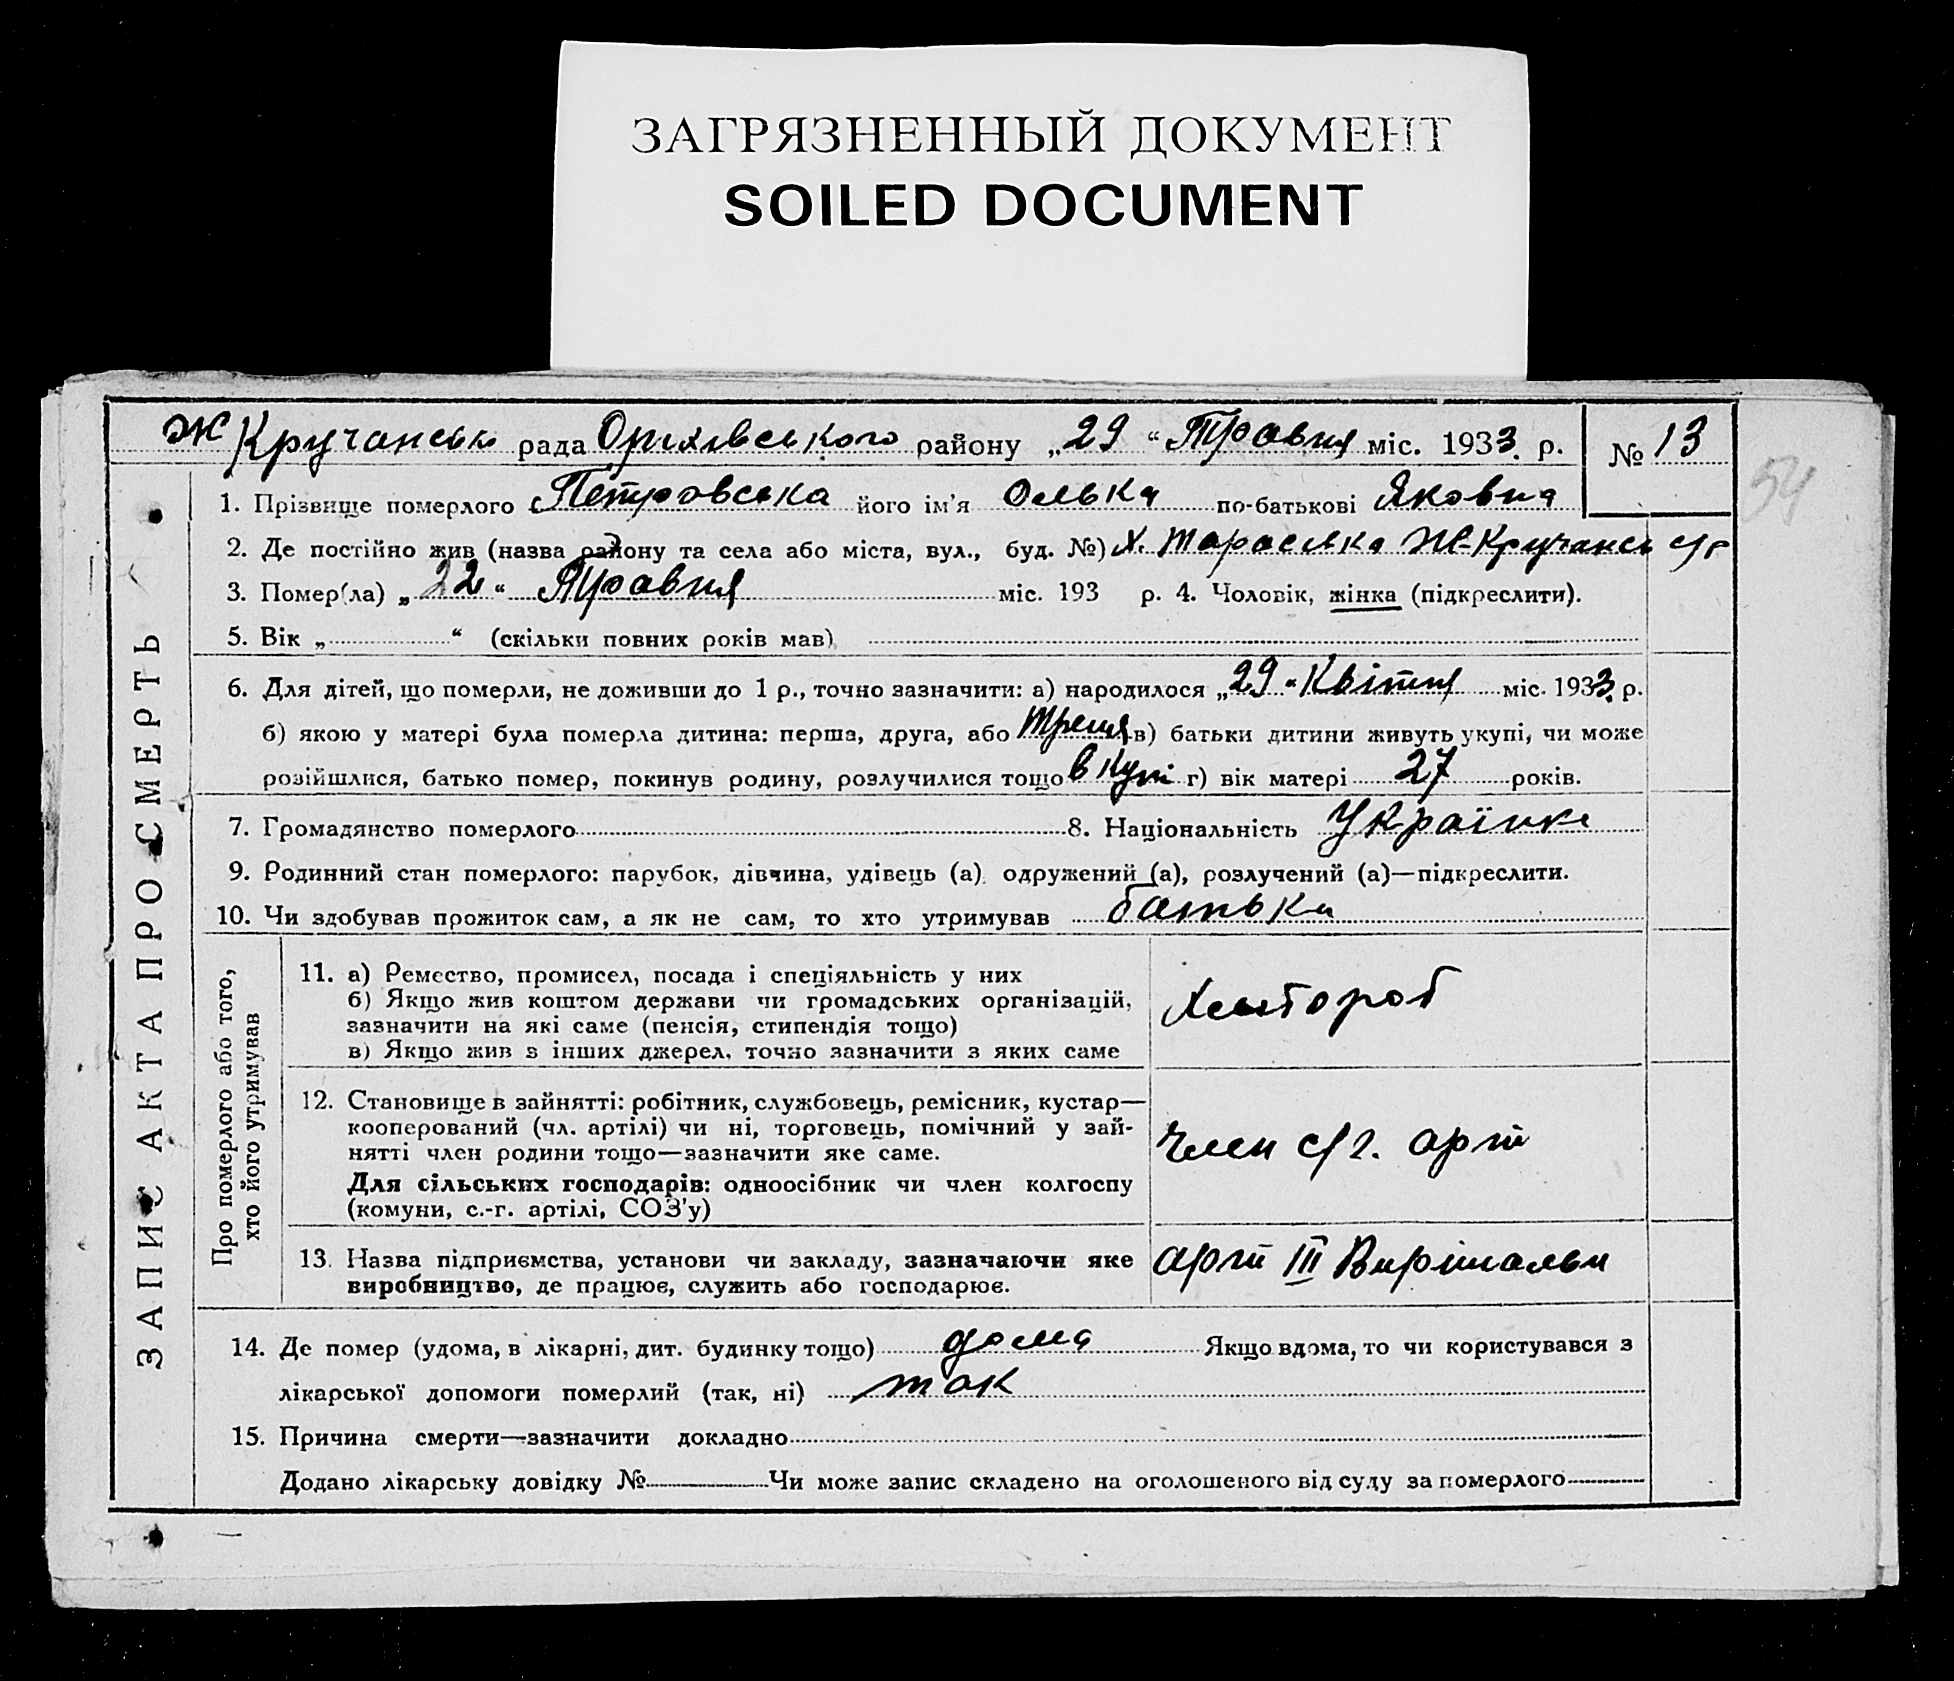 ЗАГРЯЗНЕННЫЙ ДОКУМЕНТ
SOILED DOCUMENT
Ж Кручанська рада Оріхівського району „29“ Травня міс. 1933. р. № 13
54
1. Прізвище померлого Петровська його ім'я Олька по-батькові Яковна
2. Де постійно жив (назва району та села або міста, вул., буд. №) х. Тарасівка Ж-Кручанськ с/р
3. Помер(ла) „22“ Травня міс. 193 р. 4. Чоловік, жінка (підкреслити).
5. Вік „ “ (скільки повних років мав)
6. Для дітей, що померли, не доживши до 1 р., точно зазначити: а) народилося „29“ Квітня міс. 1933. р.
б) якою у матері була померла дитина: перша, друга, або Третя в) батьки дитини живуть укупі, чи може
розійшлися, батько помер, покинув родину, розлучилися тощо вкупі г) вік матері 27 років.
7. Громадянство померлого 8. Національність Українка
9. Родинний стан померлого: парубок, дівчина, удівець (а), одружений (а), розлучений (а)—підкреслити.
10. Чи здобував прожиток сам, а як не сам, то хто утримував батьки
ЗАПИС АКТА ПРО СМЕРТЬ
Про померлого або того,
хто його утримував
11. а) Ремество, промисел, посада і спеціяльність у них
б) Якщо жив коштом держави чи громадських організацій,
зазначити на які саме (пенсія, стипендія тощо)
в) Якщо жив з інших джерел, точно зазначити з яких саме
Хлібороб
12. Становище в зайнятті: робітник, службовець, ремісник, кустар—
кооперований (чл. артілі) чи ні, торговець, помічний у зай-
нятті член родини тощо—зазначити яке саме.
Для сільських господарів: одноосібник чи член колгоспу
(комуни, с.-г. артілі, СОЗ'у)
член с/г. арт
13. Назва підприємства, установи чи закладу, зазначаючи яке
виробництво, де працює, служить або господарює.
арт III Вирішальн
14. Де помер (удома, в лікарні, дит. будинку тощо) дома Якщо вдома, то чи користувався з
лікарської допомоги померлий (так, ні) так
15. Причина смерти—зазначити докладно
Додано лікарську довідку № Чи може запис складено на оголошеного від суду за померлого